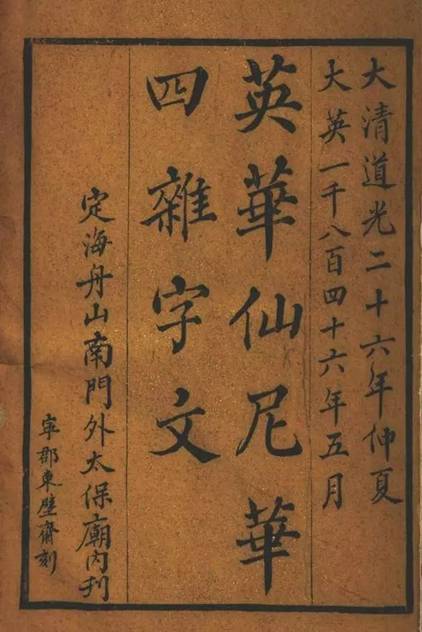 大清道光二十六年仲夏
大英一千八百四十六年五月
英華仙尼華
四雜字文
定海舟山南門外太保廟內刊
寧郡東壁齋刻